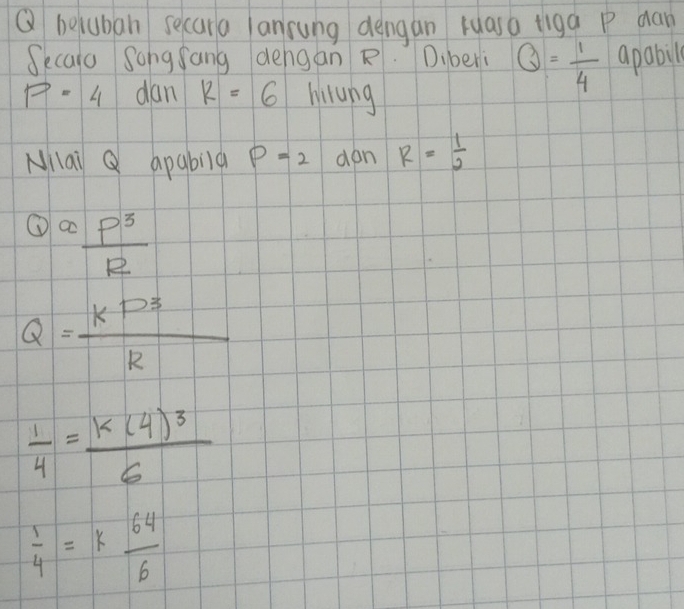 Q berubah secara lansung dengan kuasa tiga P dan
Secara Songsang dengan R. Diberi Q = 1/4 apabil
P = 4 dan R = 6 hitung
Nilai Q apabila P = 2 dan R = 1/2
Q ∝ P³/R
Q = KP³/R
1/4 = K(4)³/6
1/4 = K 64/6